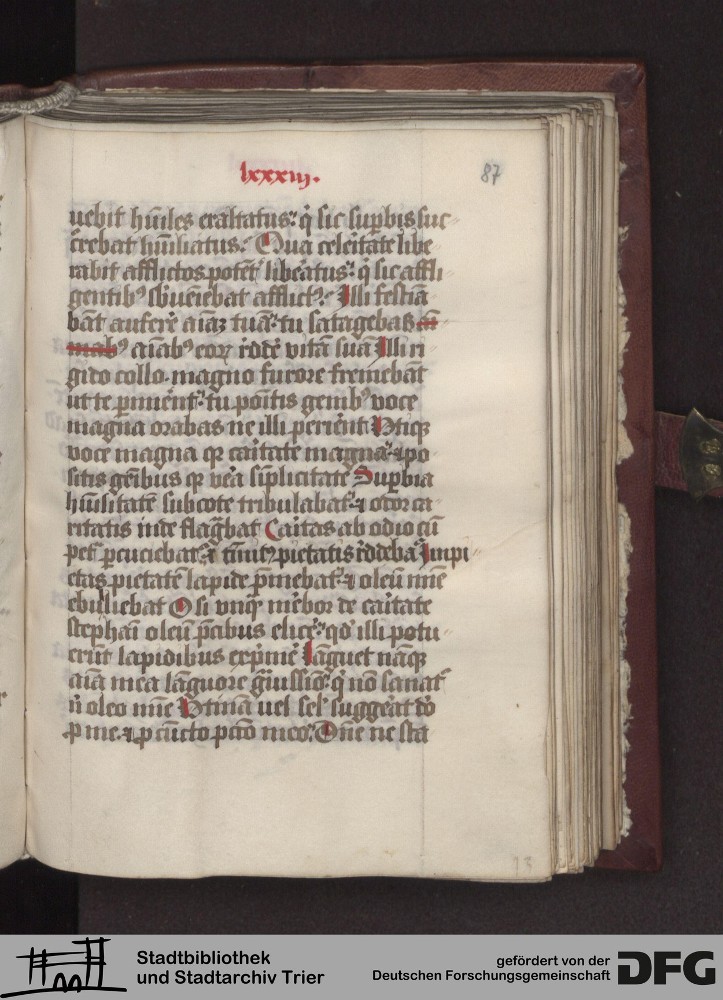 lxxxiij.
87
uehit hūiles exaltatus: q̄ sic suꝑbis suc
crebat hūiliatus: Qua celeritate libe
rabit afflictos potēt᷒ libēatus: q̄ sic affli
gentibꝰ sbueniebat afflictꝰ: Illi festiā
bāt auferē aīaꝫ tuā: tu satagebas
aīabꝰ eoꝝ rēddē vitā suā Illi ri
gido collo magno furore fremebāt
ut te ꝑimēnt: tu poītis genibꝰ voce
magna orabas ne illi perient Vtiqꝫ
voce magna qꝛ caritate magna: ⁊ po
sitis gēibus qꝛ vēa simplicitate Suꝑbia
hūilitatē sub cote tribulabat᷒ ⁊ odor ca
ritatis inde flagrbat Caritas ab odio cū
pet᷒ ꝑcuciebat᷒ ⁊ pietatis rēddebat Impi
etas pietatē lapide p̄mebat᷒ ⁊ oleū mīe
ebulliebat O si vnqꝫ mēbor de caritate
stephani oleū p̄cibus elicē: qd̓ illi potu
erūt lapidibus exp̄mē Lāguet nāqꝫ
aīa mea lāguore grauissīo: q̄ nō sanat᷒
n̄ oleo mīe Vtinā uel sel᷒ suggeat dō
ꝓ me. ⁊ ꝓ cūcto pctō meo: Dn̄e ne sta
13
Stadtbibliothek
und Stadtarchiv Trier
gefördert von der
Deutschen Forschungsgemeinschaft
DFG